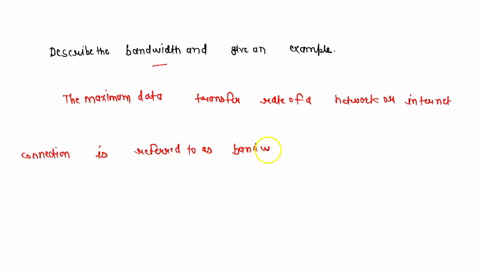 Describe the bandwidth and give an example.
The maximum data transfer rate of a network or internet
connection is referred to as bandw